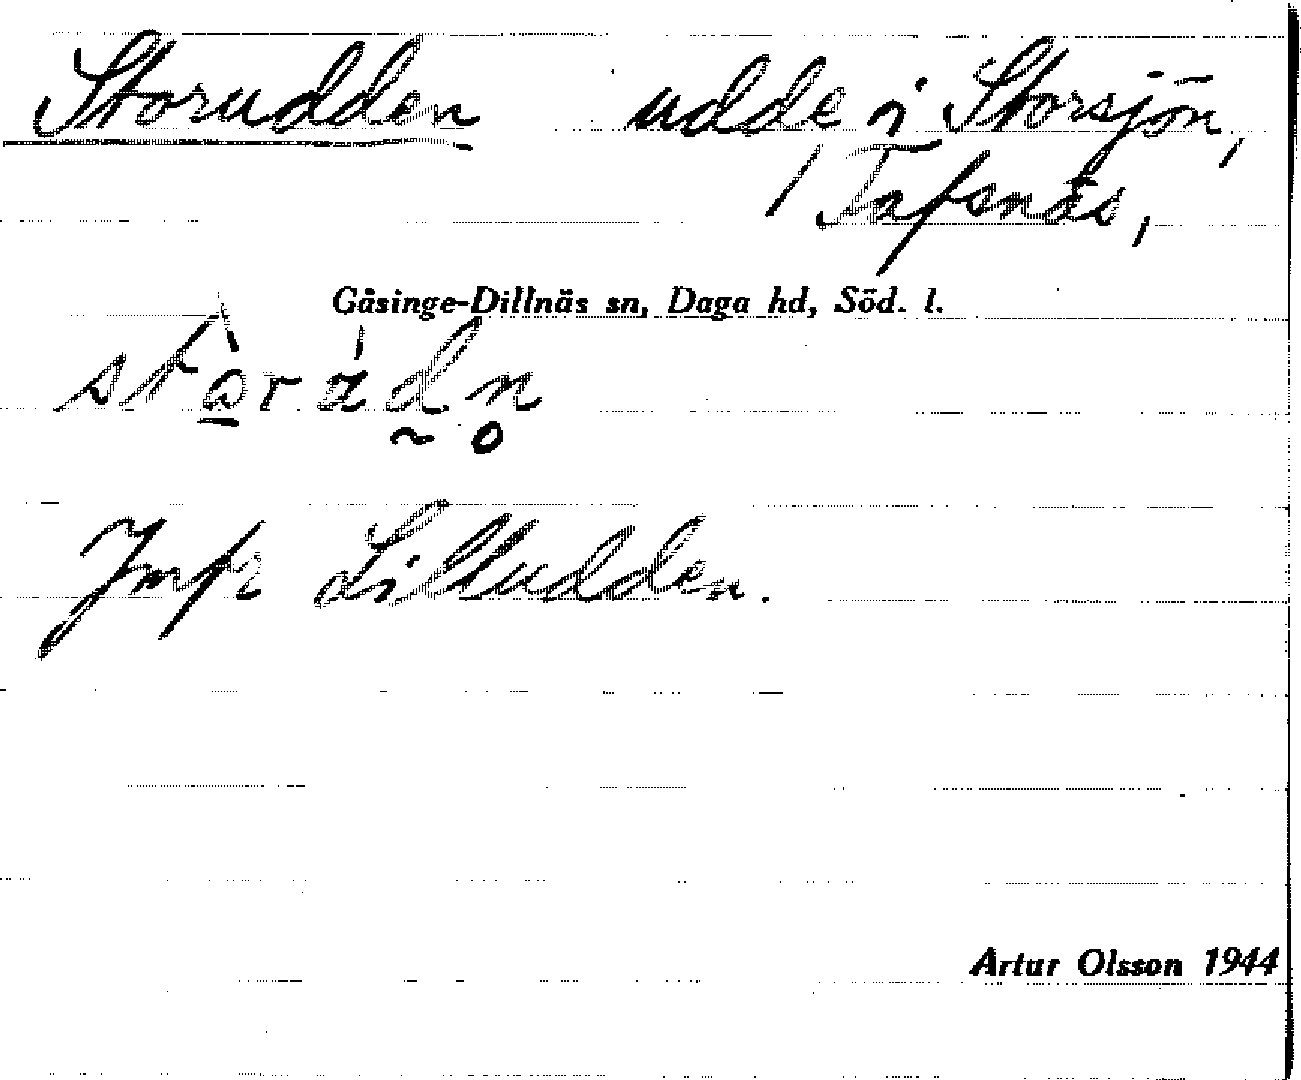 Storudden udde i Storsjön,
/ Tafsnäs,
Gåsinge-Dillnäs sn, Daga hd, Söd. l.
Jmfr Lilludden.
Artur Olsson 1944